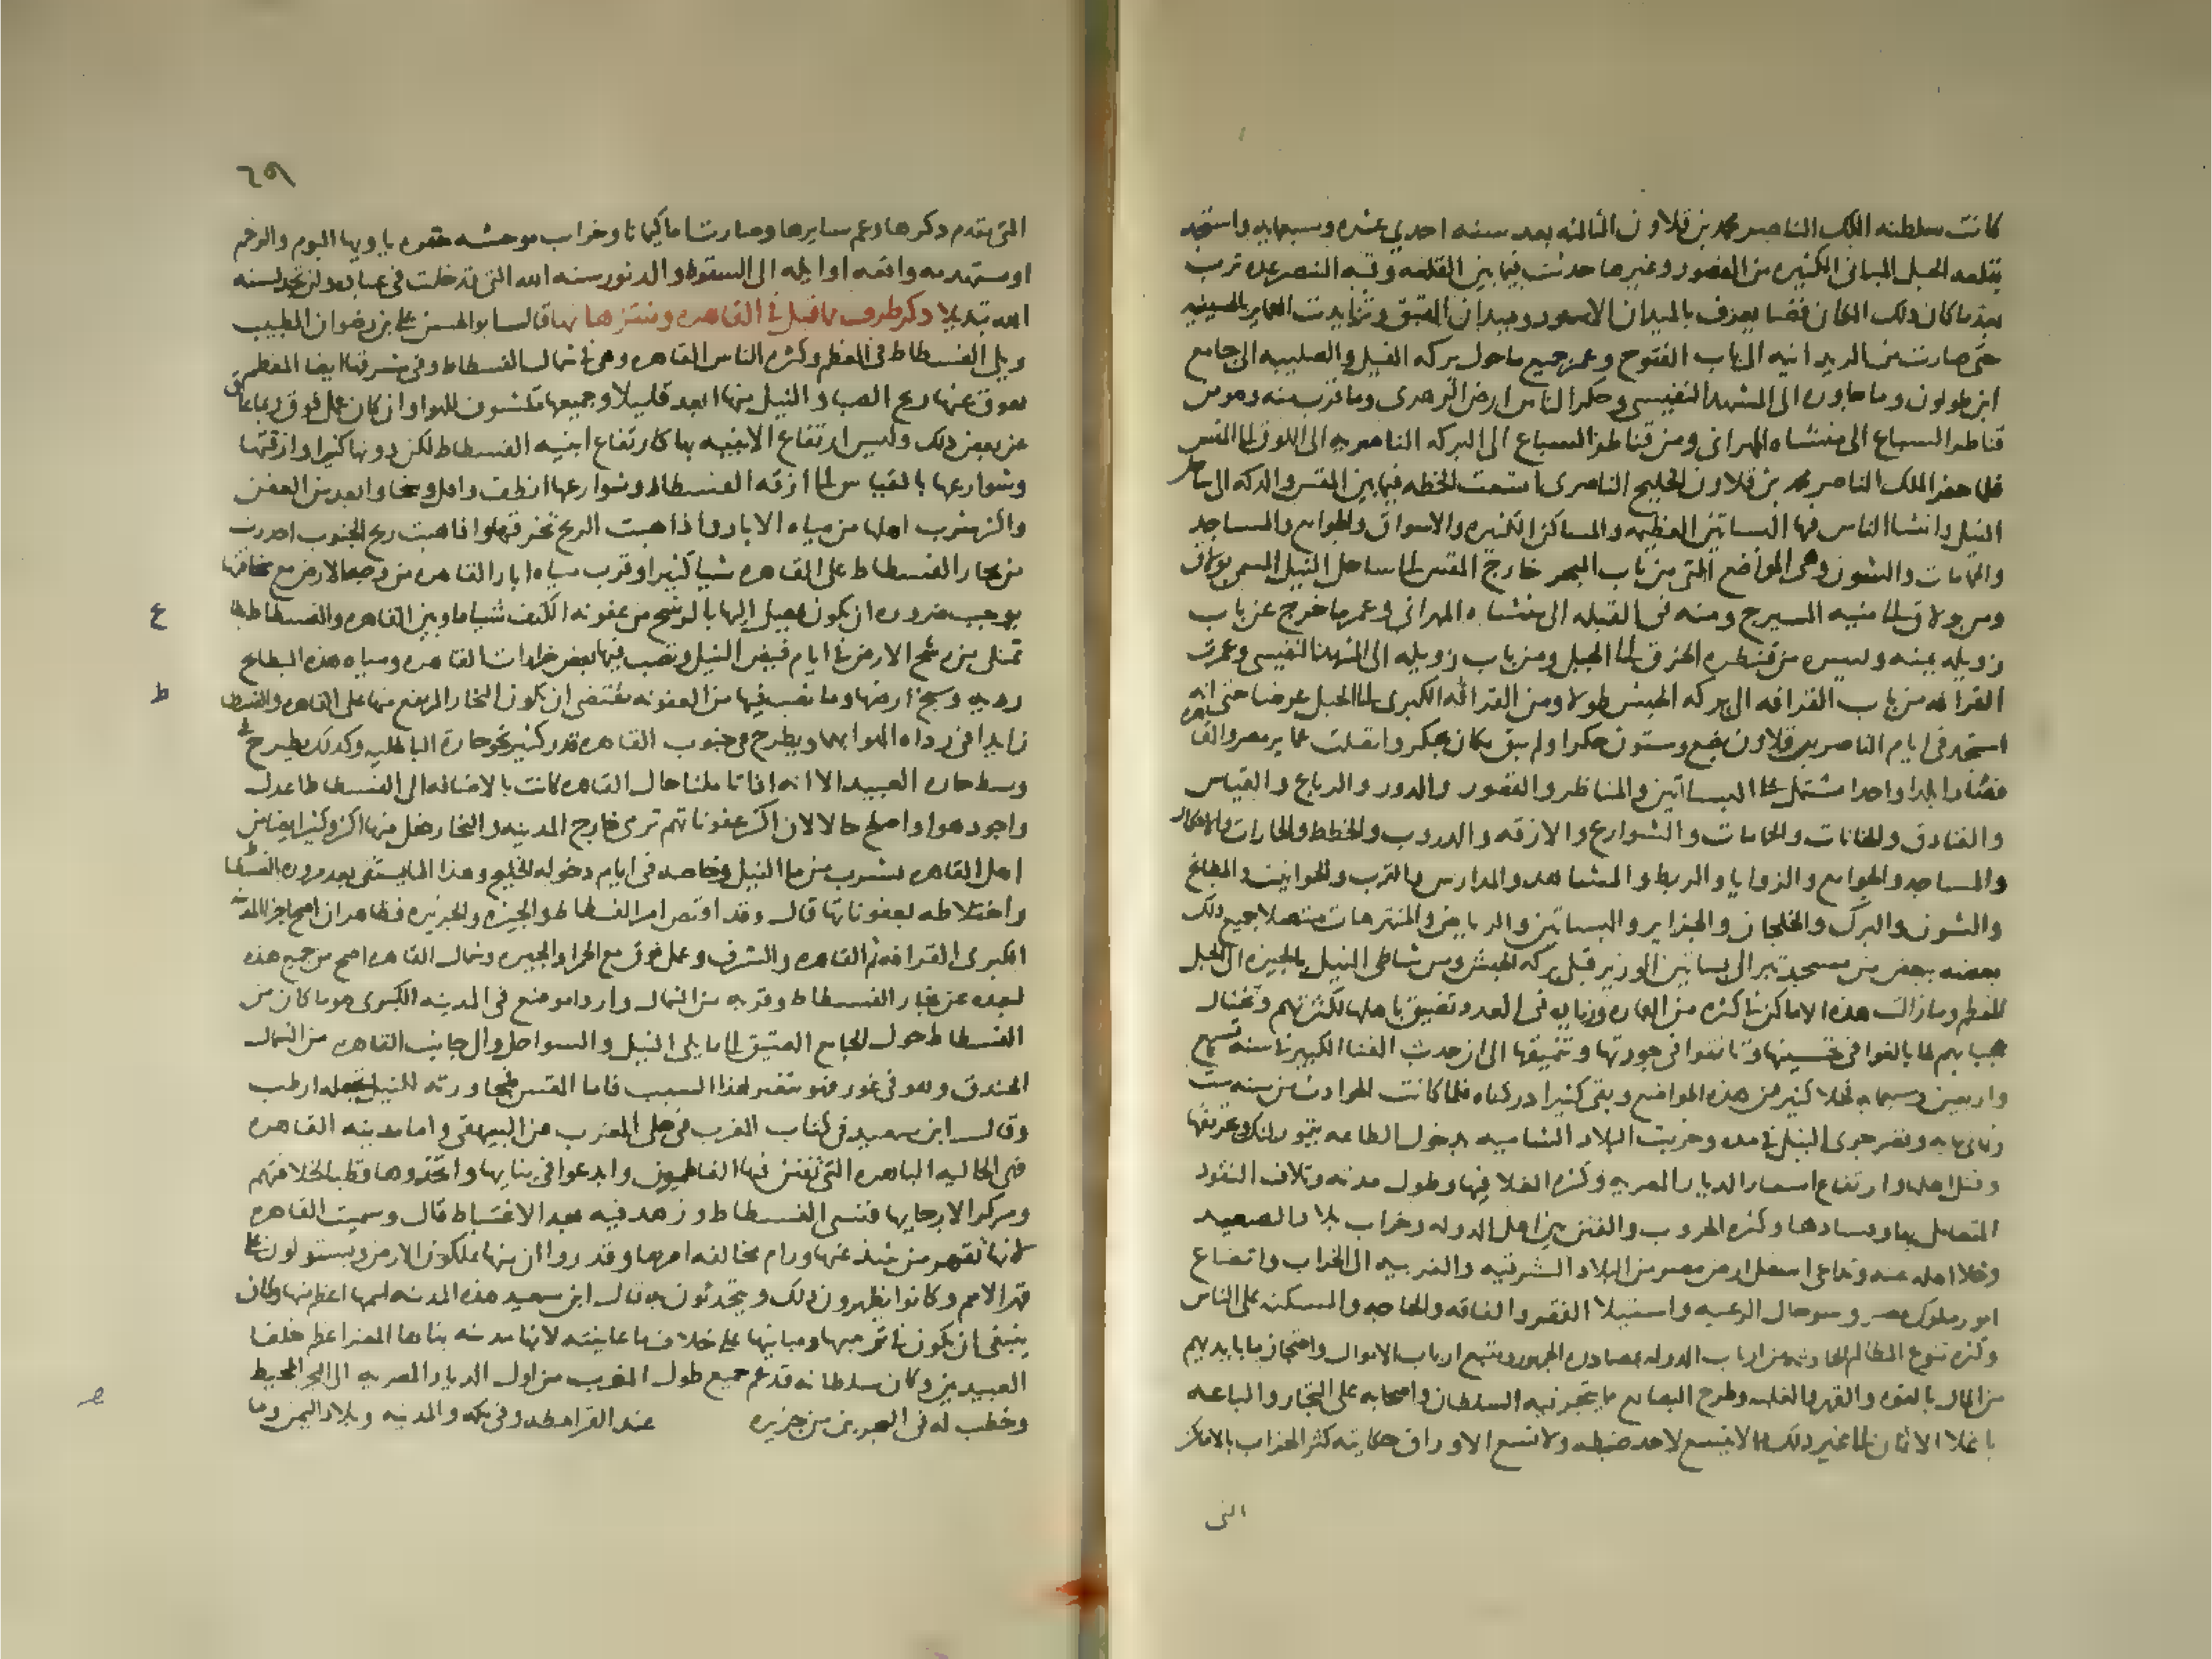 كانت سلطنه الملك الناصر محمد بن قلاون الثالثه بعد سنه احدي عشره وسبعمايه واستجد
بقلعه الجبل المباني الكثيره من القصور وغيرها حدثت فيما بين القلعه وقبه النصر عده ترب
بعدما كان ذلك المكان فضا يعرف بالميدان الاسود وميدان القبق وتزايدت العماير بالحسينيه
حتي صارت من الريدانيه الى باب الفتوح وعمر جميع ما حول بركه الفيل والصليبيه الى جامع
ابن طولون وما جاوره الى المشهد النفيسي وحكر الناس ارض الزهرى وما قرب منه وهو من
قناطر السباع الى منشاه المهراني ومن قناطر السباع الى البركه الناصريه الى اللوق الى المقس
فلما حفر الملك الناصر محمد بن قلاون الخليج الناصرى اتسعت الخطه فيما بين المقس والدكه الى ساحل
النيل وانشا الناس فيها البساتين العظيمه والمساكن الكثيره والاسواق والجوامع والمساجد
والحمامات والشون وهى المواضع التى من باب البحر خارج المقس الى ساحل النيل المسمى بولاق
ومن بولاق الى منيه السيرج ومنه فى القبله الى منشاه المهرانى وعمر ما خرج عن باب
زويله يمنه ويسره من قنطره الخرق الى الخليج ومن باب زويله الى المشهد النفيسى وعمرت
القرافه من باب القرافه الى بركه الحبش طولا ومن القرافه الكبرى الى الجبل عرضا حتى انه
استجد فى ايام الناصر بن قلاون بضع وستون حكرا ولم يبق مكان يحكر واتصلت عماير مصر والقاهره
فصارا بلدا واحدا مشتمل على البساتين والمناظر والقصور والدور والرباع والقياسر
والفنادق والخانات والحمامات والشوارع والازقه والدروب والخطط والحارات والاحكار
والمساجد والجوامع والزوايا والربط والمشاهد والمدارس والترب والحوانيت والمطابخ
والشون والبرك والخلجان والجزاير والبساتين والرياض والمنتزهات متصلا جميع ذلك
بعضه ببعض من مسجد تبر الى بساتين الوزير قبلى بركه الحبش ومن شاطى النيل بالجيزه الى الجبل
المقطم وما زالت هذه الاماكن في كثره من العماره وزياده فى العدد وتضيق باهلها لكثرتهم وتختال
عجبا بهم لما بالغوا في تحسينها وتانقوا في جودتها وتنميقها الى ان حدث الفنا الكبير في سنه تسع
واربعين وسبعمايه فخلا كثير من هذه المواضع وبقى كثير ادركناه فلما كانت الحوادث من سنه ست
وثمانى مايه وقصر جرى النيل في مده وخربت البلاد الشاميه بدخول الطاغيه تيمورلنك وتحريقها
وقتل اهلها وارتفاع اسعار الديار المصريه وكثره الغلا فيها وطول مدته وتلاف النقود
المتعامل بها وفسادها وكثره الحروب والفتن بين اهل الدوله وخراب بلاد الصعيد
وخلا اهله عنه وتداعى اسفل ارض مصر من البلاد الشرقيه والغربيه الى الخراب واتضاع
امور ملوك مصر وسو حال الرعيه واستيلا الفقر والفاقه والحاجه والمسكنه على الناس
وكثره تنوع المظالم الحادثه من ارباب الدوله بمصادره الجمهور وتتبع ارباب الاموال واحتجاز ما بايديهم
من المال بالقوه والقهر والغلبه وطرح البضايع مما يتجر فيه السلطان واصحابه على التجار والباعه
باغلا الاثمان الى غير ذلك مما لا يتسع لاحد ضبطه ولا تسع الاوراق حكايته كثر الخراب بالاماكن
التى
٢٥٩
التى تقدم ذكرها وعم سايرها وصارت كيمانا وخراب موحشه مقفره ياويها البوم والرخم
او مستهدمه واقعه او ايله الى السقوط والدثور سنه الله التى قد خلت فى عباده ولن تجد لسنه
الله تبديلا ذكر طرف مما قيل في القاهره ومنتزهاتها قال ابو الحسن علي بن رضوان الطبيب
ويلى الفسطاط فى العظم وكثره الناس القاهره وهى في شمال الفسطاط وفى شرقها ايضا المقطم
يعوق عنها ريح الصبا والنيل منها ابعد قليلا وجميعها مكشوف للهوا وان كان عمل فوق ربما عاق
عن بعض ذلك وليس ارتفاع الابنيه بها كارتفاع ابنيه الفسطاط لكن دونها كثيرا وازقتها
وشوارعها بالقياس الى ازقه الفسطاط وشوارعها انظف واقل وسخا وابعد من العفن
واكثر شرب اهلها من مياه الابار واذا هبت الريح الجنوب اخذت
من بخار الفسطاط على القاهره شيا كثيرا وقرب مياه ابار القاهره من وجه الارض مع سخافتها
يوجب ضروره ان يكون يصل اليها بالرشح من عفونه الكنف شيا ما وبين القاهره والفسطاط بطايح
تمتلى من رشح الارض في ايام فيض النيل ويصب فيها بعض خرارات القاهره ومياه هذه البطايح
رديه وسخ ارضها وما يصب فيها من العفونه يقتضى ان يكون البخار المرتفع منها على القاهره والفسطاط
زايدا فى رداه الهوا بهما ويطرح فى جنوب القاهره قذر كثير نحو حاره الباطليه وكذلك يطرح في
وسط حاره العبيد الا انه اذا تاملنا حال القاهره كانت بالاضافه الى الفسطاط اعدل
واجود هوا واصلح حالا لان اكثر عفوناتهم ترمى خارج المدينه والبخار ينحل منها اكثر وكثير ايضا من
اهل القاهره يشرب من ماا النيل وخاصه فى ايام دخوله الخليج وهذا الما يستقى بعد مروره بالفسطاط
واختلاطه بعفوناتها قال وقد اقتصر امر الفسطاط والجيزه والجزيره فظاهر ان اصح اجزا المدينه
الكبرى القرافه ثم القاهره والشرف وعمل فوق مع الحمرا والجيزه وشمال القاهره اصح من جميع هذه
لبعده عن بخار الفسطاط وقربه من الشمال واردا موضع فى المدينه الكبرى هو ما كان من
الفسطاط حول الجامع العتيق الى ما يلى النيل والسواحل والى جانب القاهره من الشمال
الخندق وهو فى غور فهو يتغير لهذا السبب فاما المقس فمجاورته للنيل تجعله ارطب
وقال ابن سعيد فى كتاب المغرب فى حلى المغرب عن البيهقى واما مدينه القاهره
فهى الحاليه الباهره التى تفنن فيها الفاطميون وابدعوا فى بنايها واتخذوها قطبا لخلافتهم
ومركزا لارجايها فنسى الفسطاط وزهد فيه بعد الاغتباط قال وسميت القاهره
لانها تقهر من شذ عنها ورام مخالفه امرها وقدروا ان منها يملكون الارض ويستولون على
قهر الامم وكانوا يظهرون ذلك ويتحدثون به قال ابن سعيد هذه المدينه اسمها اعظم منها وكان
ينبغى ان يكون في ترتيبها ومبانيها على خلاف ما عاينته لانها مدينه بناها المعز اعظم خلفا
العبيديين وكان سلطانه قد عم جميع طول المغرب من اول الديار المصريه الى البحر المحيط
وخطب له فى البحرين من جزيره عند القرامطه وفى مكه والمدينه وبلاد اليمن وما